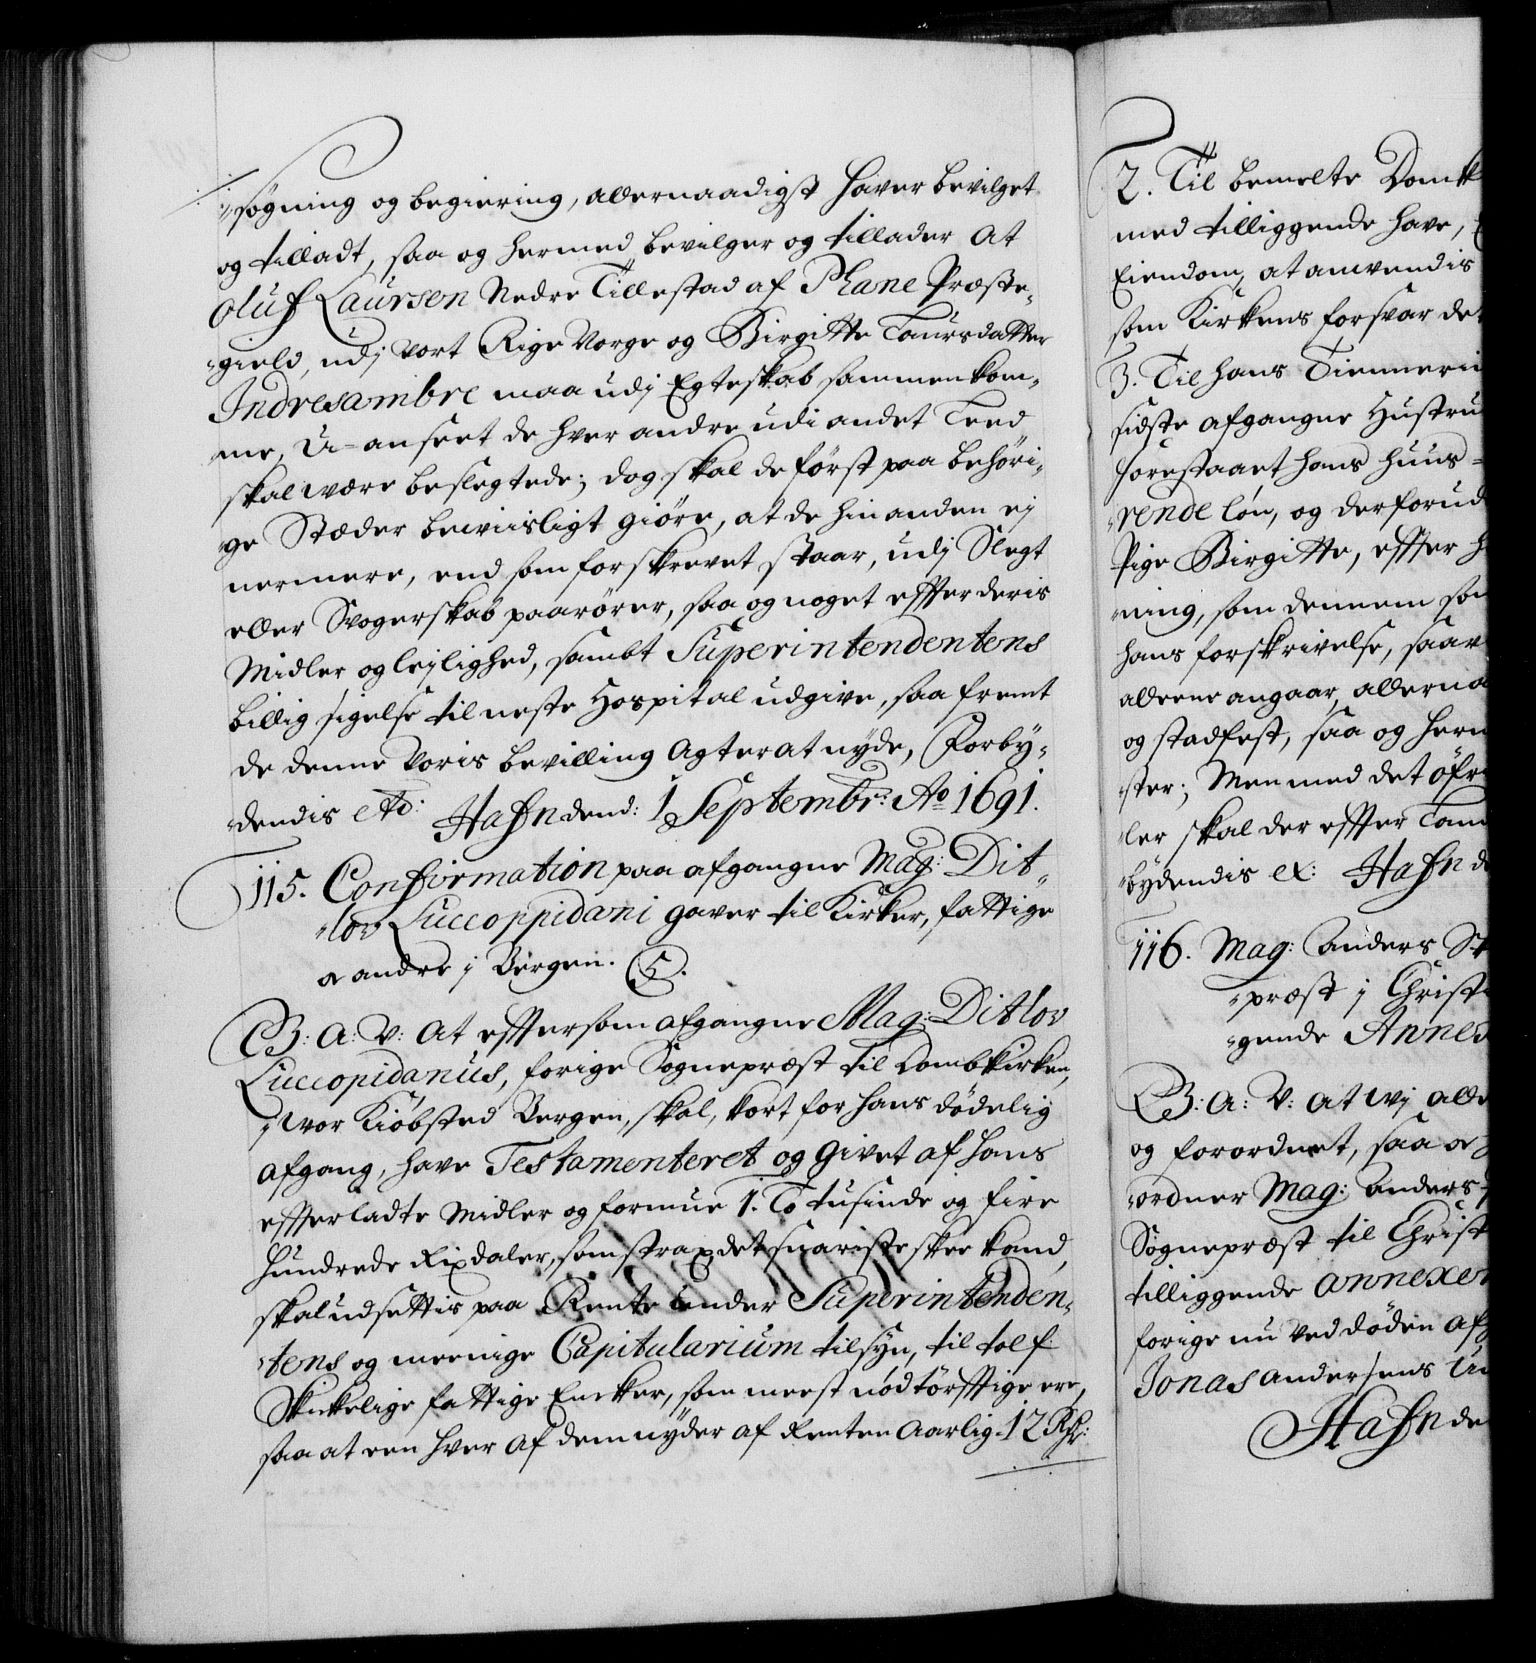 „søgning og begiering, allernaadigst haver bevilget
og tilladt, saa og hermed bevilger og tillader At
Oluf Laursen Nedre Tillestad af Plane Præste„
„gield, udj vort Rige Norge og Birgitte Laursdatter
Indresambre maa udj Egteskab sammenkom„
me, U-anseet de hver andre udi andet Leed
skal være beslegtede; dog skal de først paa behöri„
ge Stæder bevisligt giöre, at de hinanden ej
nermere, end som forskrevet staar, udj Slegt
eller Svogerskab paarörer, saa og noget effter deris
Midler og lejlighed, sambt Superintendentens
billig sigelse til neste Hospital udgive, saa fremt
de denne voris bevilling agter at nyde, Forby„
„dendis etc: Hafn dend: 1 Septembr: Ao 1691.
115. Confirmation paa afgangne Mag: Dit„
„lov Luccoppidani gaver til Kirker, fattige
oc andre j Bergen. 5.
C5: A: V: At efftersom afgangne Mag: Ditlov
Luccopidanus, forige Sognepræst til Dombkirken,
j vor Kiöbsted Bergen, skal, kort for hans dödelig
afgang, have Testamenteret og givet af hans
effterladte Midler og formue 1. To tusinde og fire
hundrede Rixdaler, som strax det snariste skee kand,
skal udsettis paa Rente under Superintenden„
„tens og meenige Capitularium tilsyn, til tolf
Skickelige fattige Encker, som meest nödtörfftige ere,
saa at een hver af dem nyder af Renten Aarlig. 12 Rdr:
2. Til bemelte Domk
med tilliggende have,
Eiendom, at anvendis
som Kirkens forsvar det
3. Til hans Tienneri
sidste afgangne Hustru
forestaaet hans huus„
„rende lön, og derforud
Pige Birgitte, effter h
„ning, som dennem som
hans forskrivelse, saav
alleene angaar, allerna
og stadfest, saa og herm
„ster; Men med det öfri
„ler skal der effter Lan
„bydendis etc: Hafn de
116. Mag: Anders St
„præst j Christi
„gende Annex
C5: A: V: At Wj alle
og forordnet, saa oc
„ordner Mag: Anders
Sognepræst til Christ
tilliggende Annexer
forige nu ved döden afg
Jonas Andersens
Hafn de